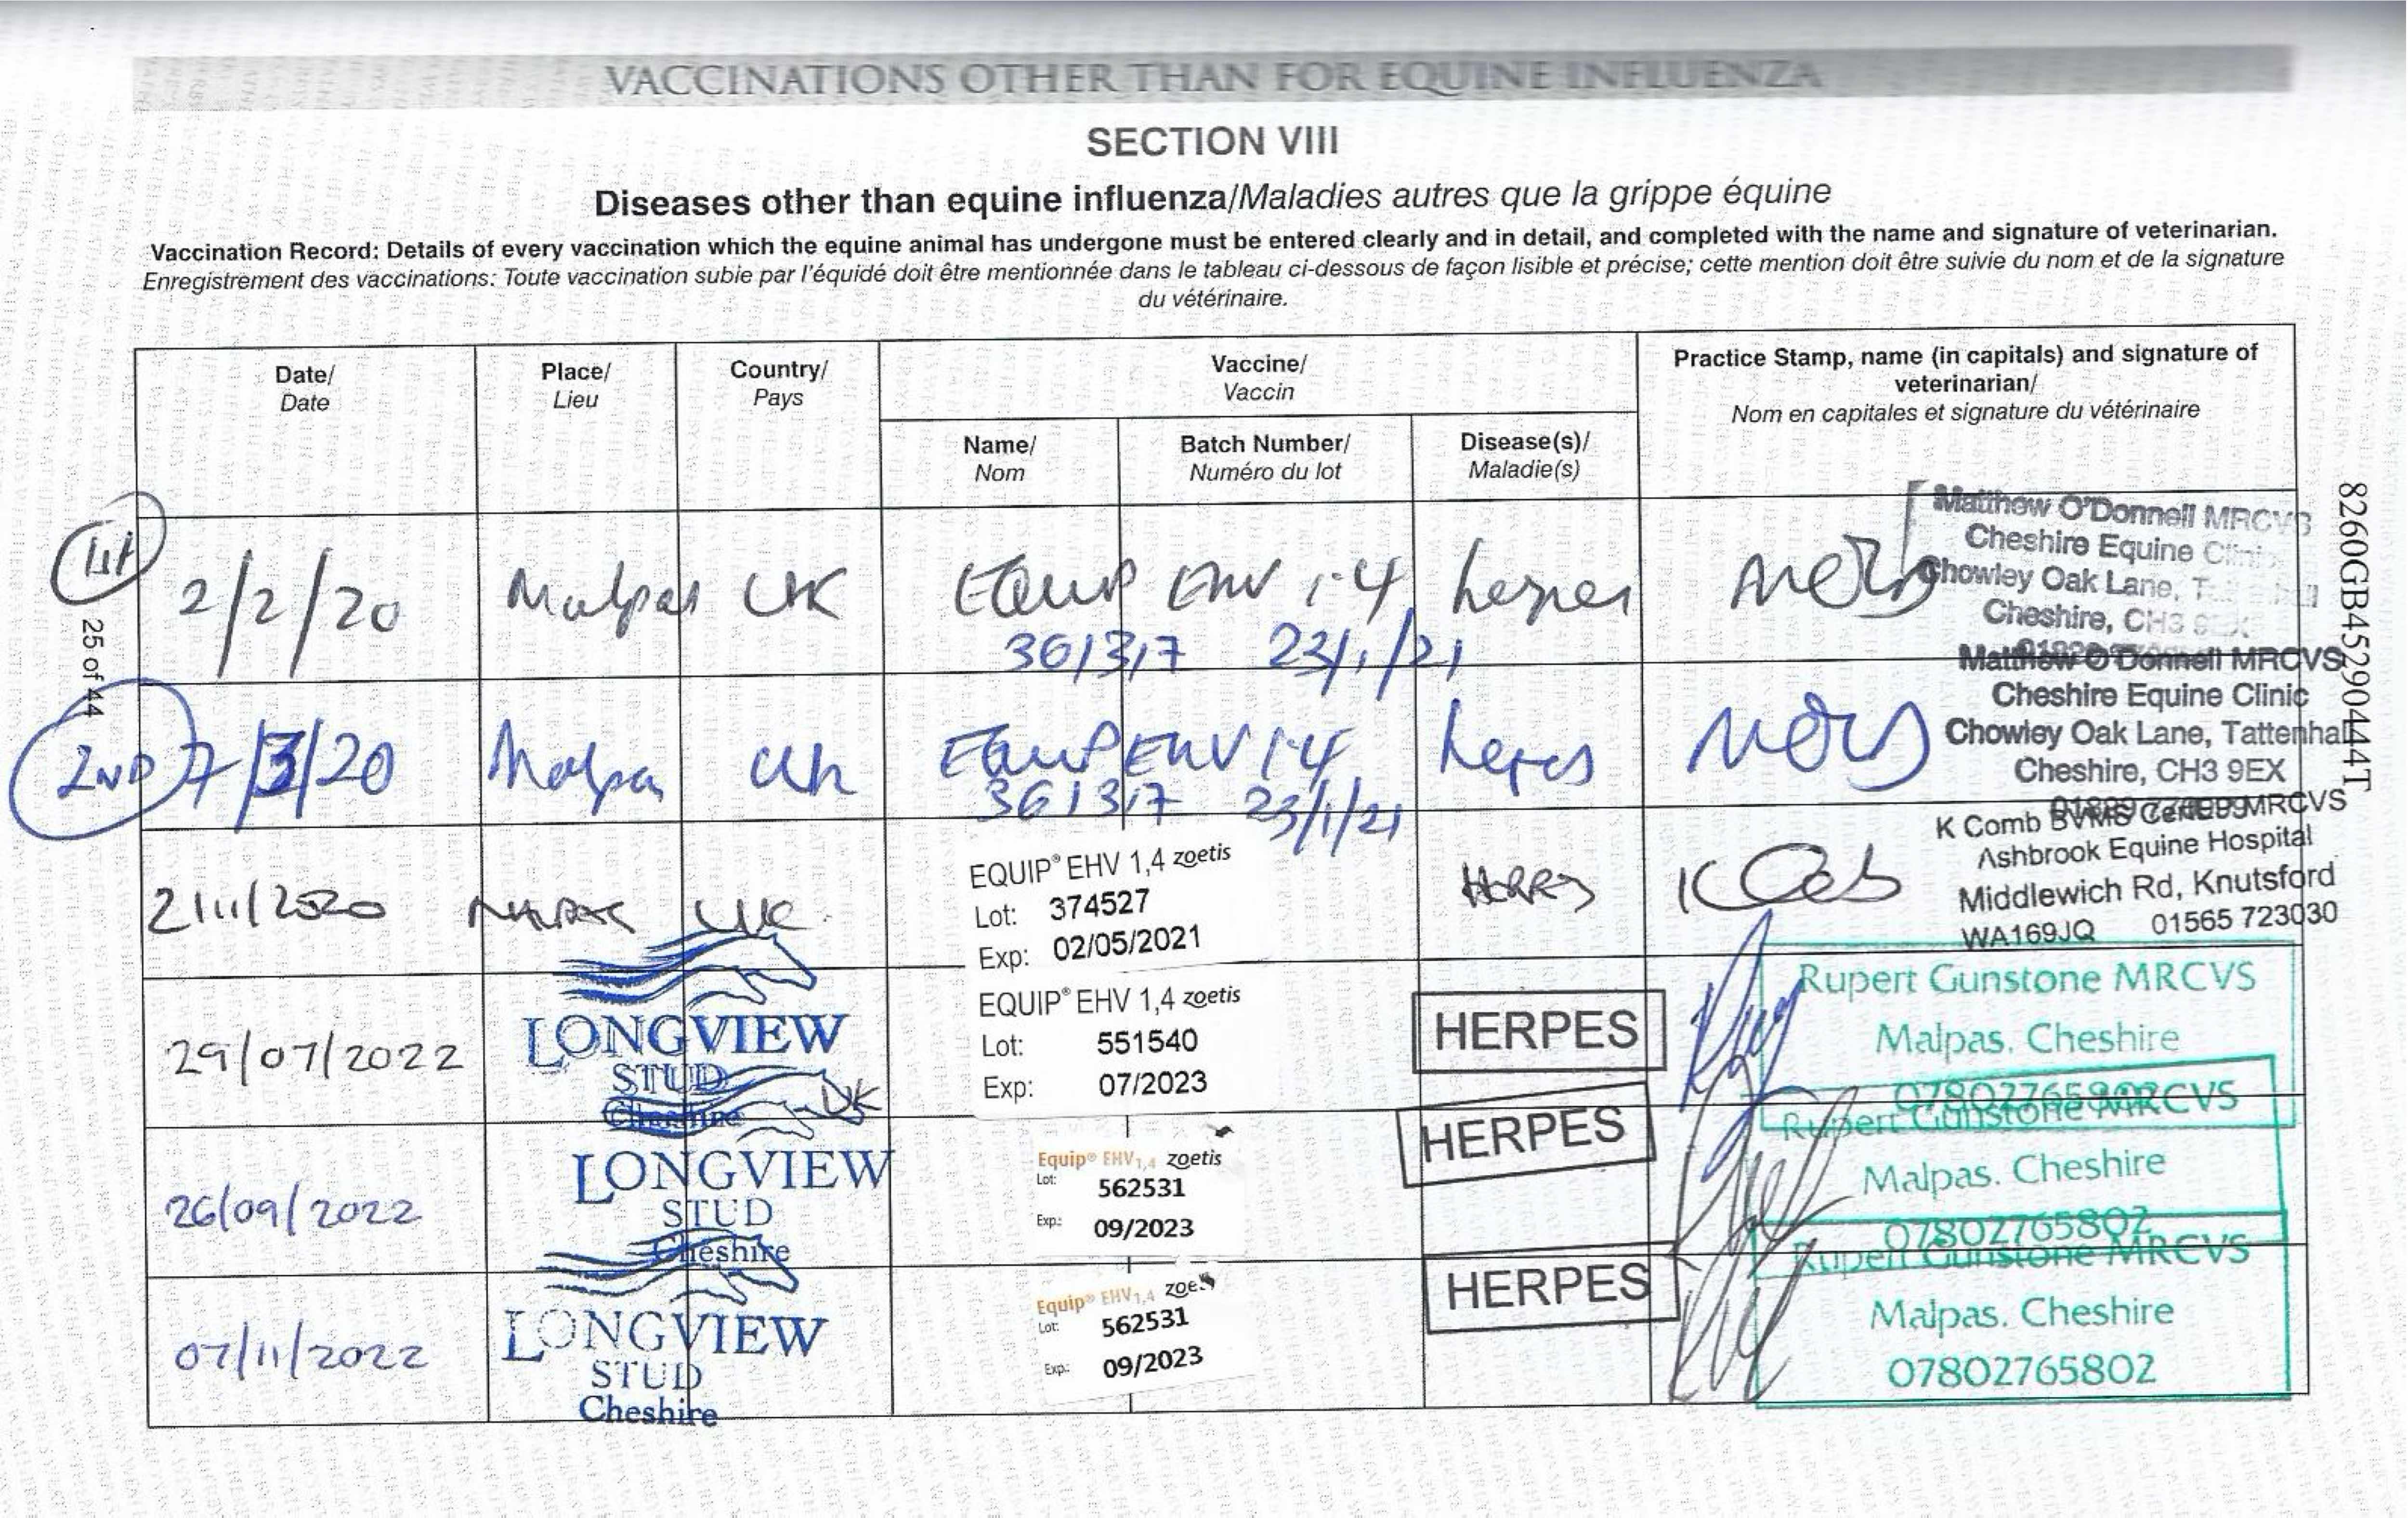 VACCINATIONS OTHER THAN FOR EQUINE INFLUENZA
SECTION VIII
Diseases other than equine influenza/Maladies autres que la grippe équine
Vaccination Record: Details of every vaccination which the equine animal has undergone must be entered clearly and in detail, and completed with the name and signature of veterinarian.
Enregistrement des vaccinations: Toute vaccination subie par l'équidé doit être mentionnée dans le tableau ci-dessous de façon lisible et précise; cette mention doit être suivie du nom et de la signature
du vétérinaire.
Date/
Date
Place/
Lieu
Country/
Pays
Vaccine/
Vaccin
Name/
Nom
Batch Number/
Numéro du lot
Disease(s)/
Maladie(s)
Practice Stamp, name (in capitals) and signature of
veterinarian/
Nom en capitales et signature du vétérinaire
1st
2/2/20 Malpas UK Equip EHV 1.4 herpes
361317 23/1/21
Matthew O'Donnell MRCVS
Cheshire Equine Clinic
Chowley Oak Lane,
Cheshire, CH3 9EX
2ND 7/3/20 Malpas UK Equip EHV 1.4 herpes
361317 23/1/21
Matthew O'Donnell MRCVS
Cheshire Equine Clinic
Chowley Oak Lane, Tattenhall
Cheshire, CH3 9EX
2/11/2020 MALPAS UK
EQUIP® EHV 1,4 zoetis
Lot: 374527
Exp: 02/05/2021
HERPES
K Comb BVMS MRCVS
Ashbrook Equine Hospital
Middlewich Rd, Knutsford
WA169JQ 01565 723030
29/07/2022
LONGVIEW
STUD
Cheshire
UK
EQUIP® EHV 1,4 zoetis
Lot: 551540
Exp: 07/2023
HERPES
Rupert Gunstone MRCVS
Malpas. Cheshire
07802765802
26/09/2022
LONGVIEW
STUD
Cheshire
Equip® EHV1,4 zoetis
Lot: 562531
Exp.: 09/2023
HERPES
Rupert Gunstone MRCVS
Malpas. Cheshire
07802765802
07/11/2022
LONGVIEW
STUD
Cheshire
Equip® EHV1,4
Lot: 562531
Exp.: 09/2023
HERPES
Rupert Gunstone MRCVS
Malpas. Cheshire
07802765802
25 of 44
8260GB45290444T